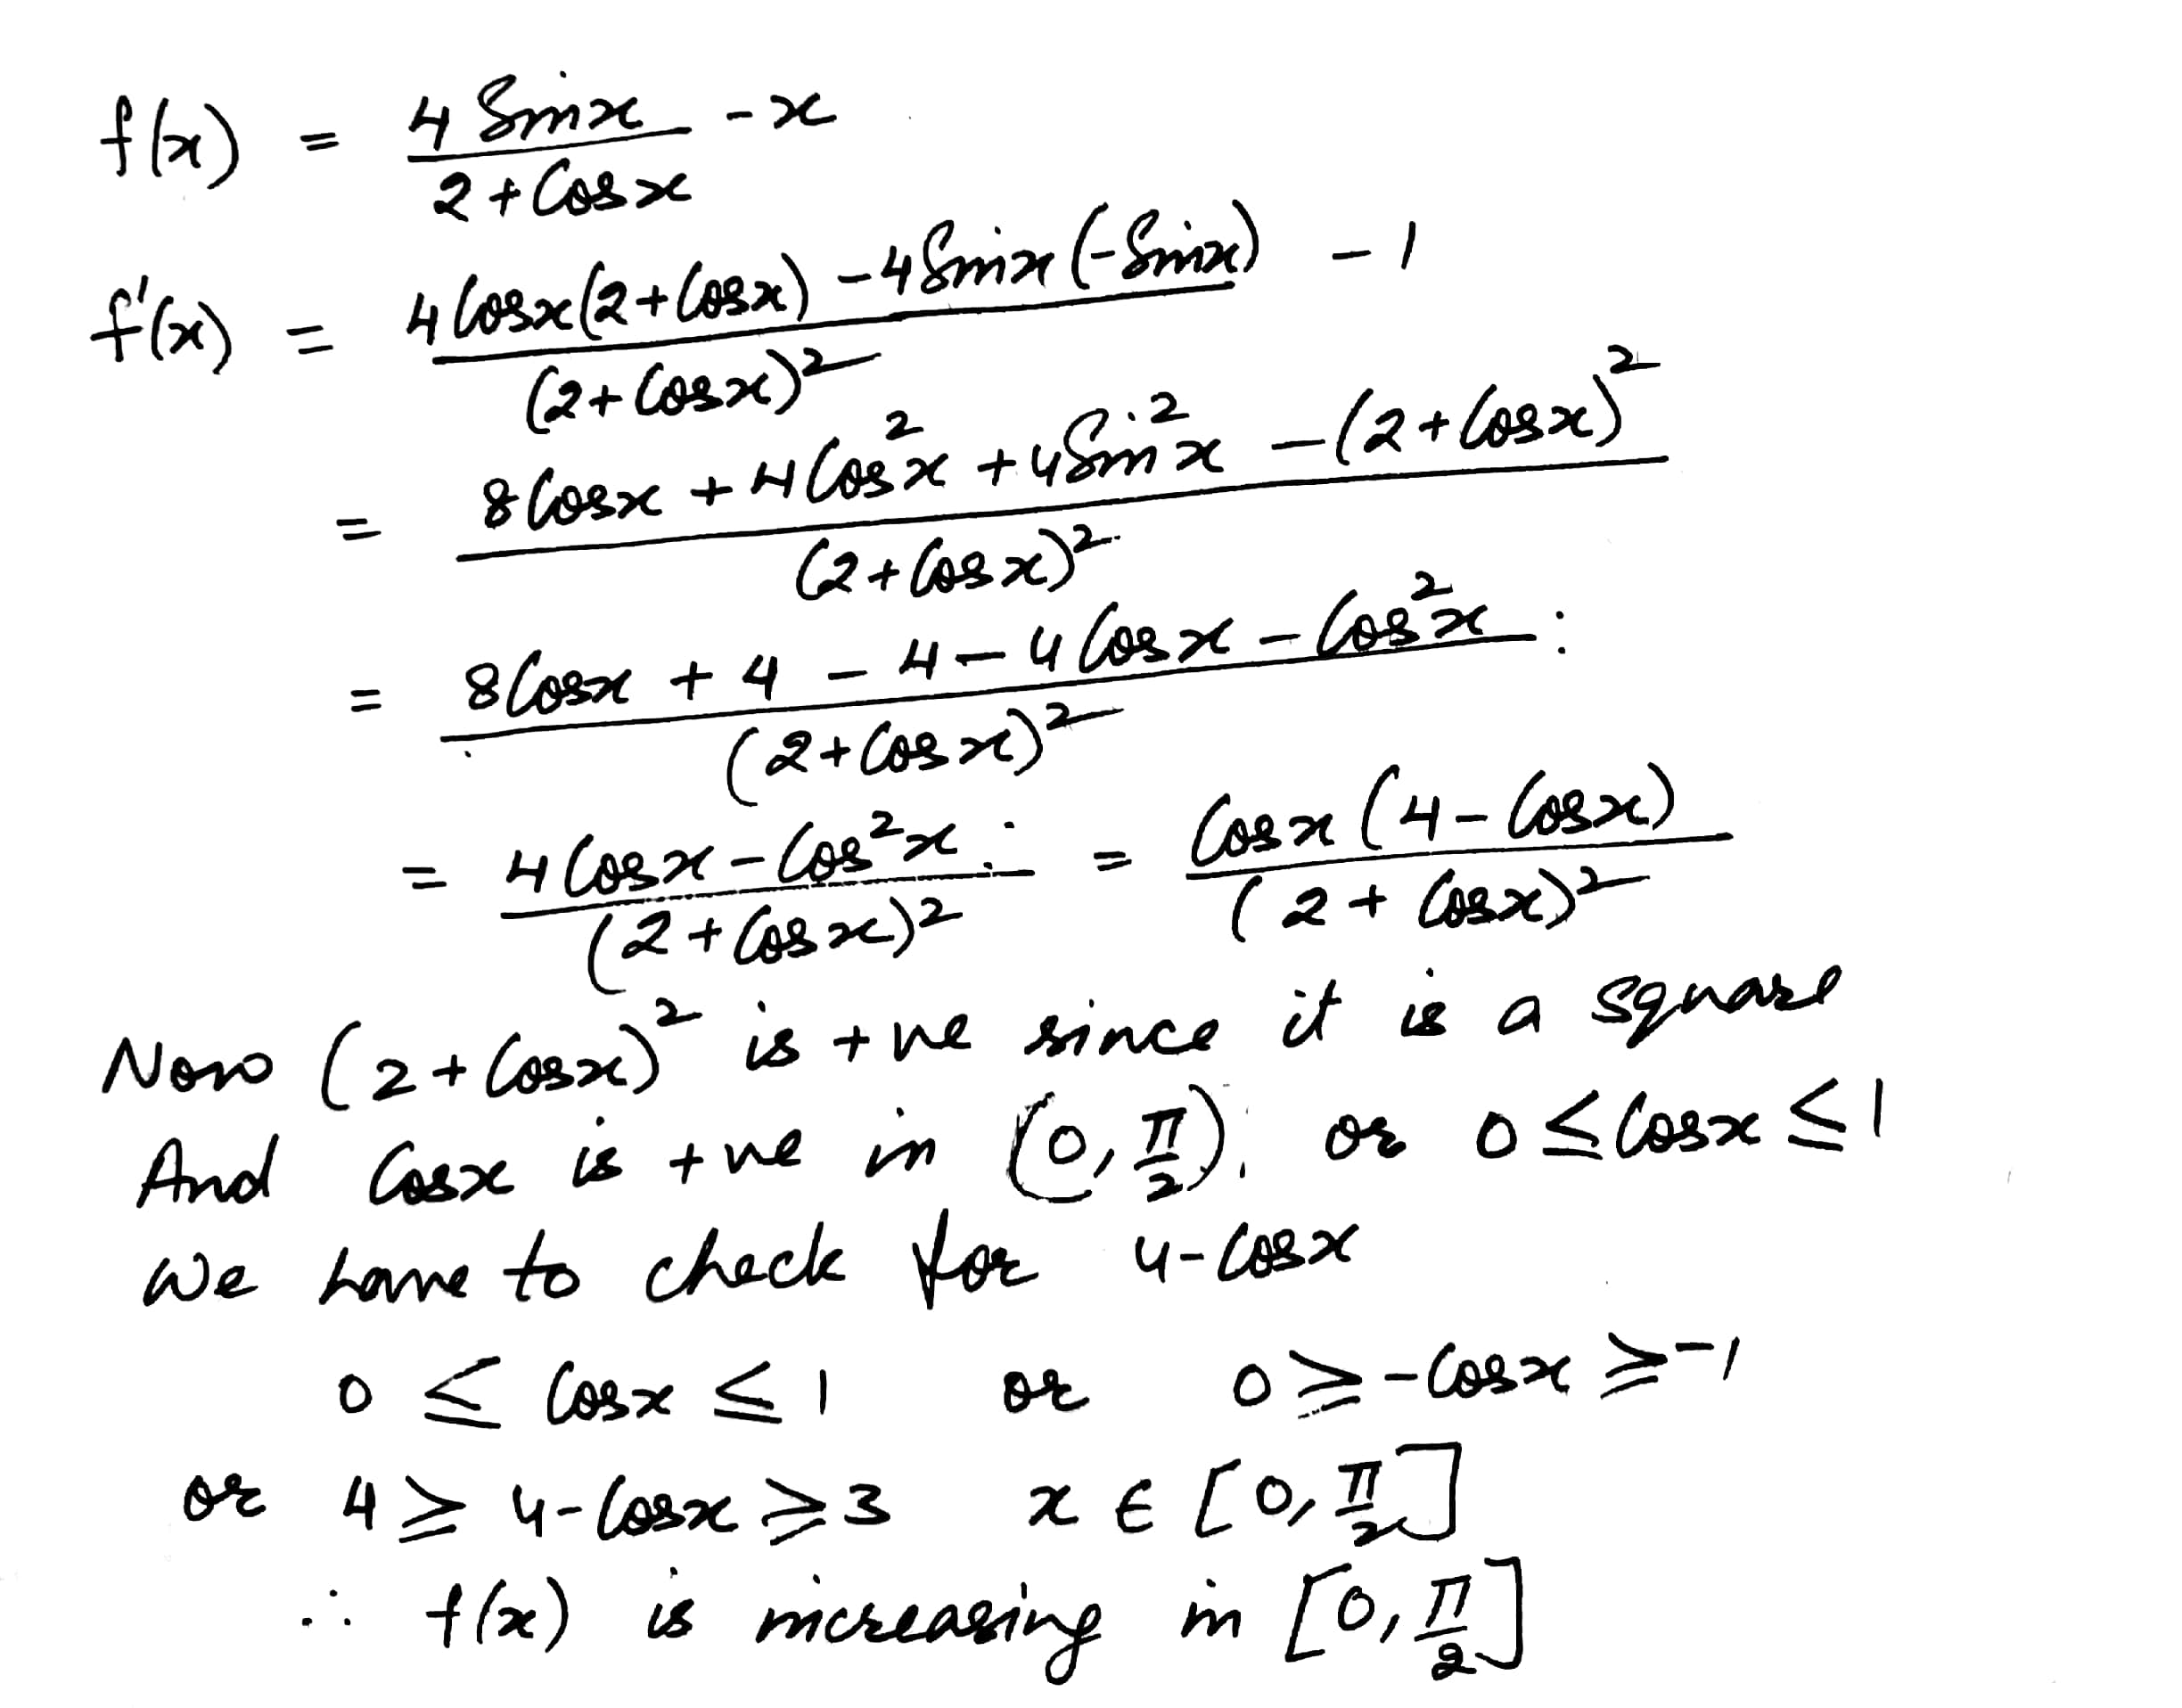 f(x) = 4 Sinx / 2 + Cosx - x
f'(x) = 4 Cosx (2 + Cosx) - 4 Sinx (-Sinx) / (2 + Cosx)² - 1
= 8 Cosx + 4 Cos²x + 4 Sin²x - (2 + Cosx)² / (2 + Cosx)²
= 8 Cosx + 4 - 4 - 4 Cosx - Cos²x / (2 + Cosx)²
= 4 Cosx - Cos²x / (2 + Cosx)² = Cosx (4 - Cosx) / (2 + Cosx)²
Now (2 + Cosx)² is +ve since it is a square
And Cosx is +ve in (0, π/2); or 0 ≤ Cosx ≤ 1
We have to check for 4 - Cosx
0 ≤ Cosx ≤ 1 or 0 ≥ -Cosx ≥ -1
or 4 ≥ 4 - Cosx ≥ 3 x ∈ [0, π/2]
∴ f(x) is increasing in [0, π/2]